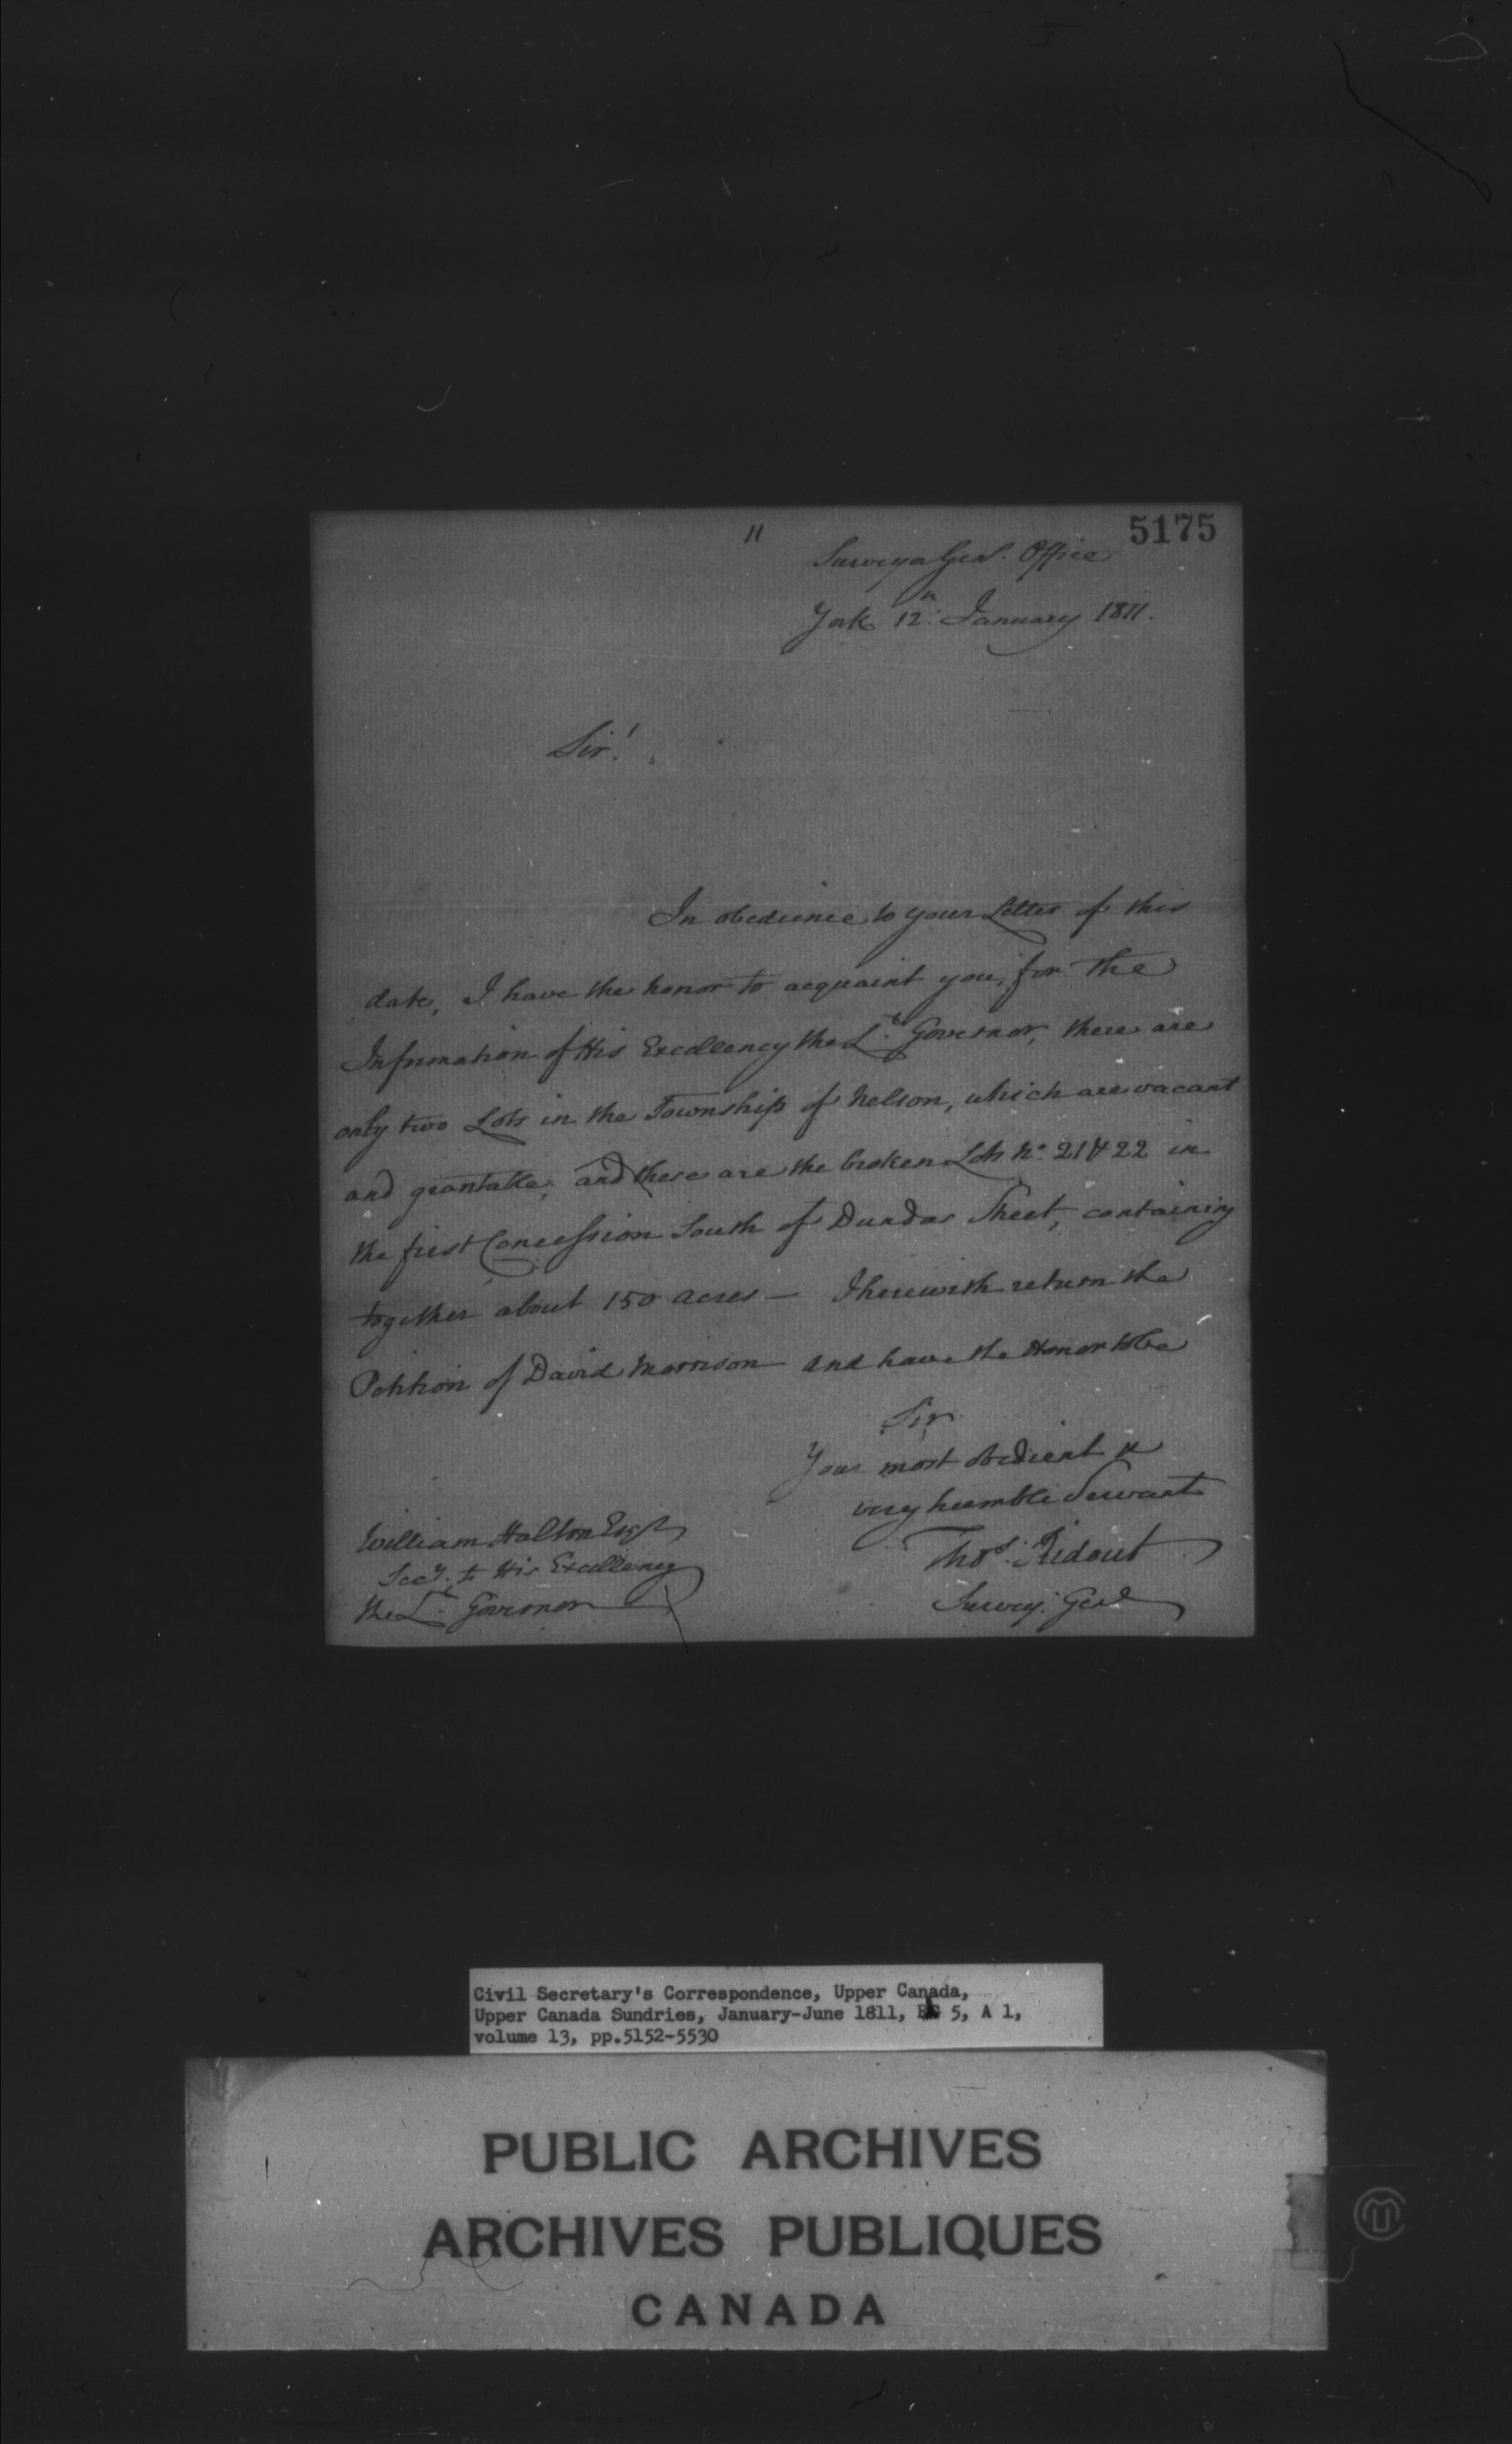 11
5175
Surveyor Genl. Office
York 12th January 1811.
Sir!
In obedience to your Letter of this
date, I have the honor to acquaint you, for the
Information of His Excellency the Lt. Governor, there are
only two Lots in the Township of Nelson, which are vacant
and grantable, and these are the broken Lots No. 21 & 22 in
the first Concession South of Dundas Street, containing
together about 150 acres — I herewith return the
Petition of David Morrison and have the Honor to be
Sir,
Your most obedient &
very humble Servant
Thos. Ridout
Survey. Genl
William Halton Esqr
Secy. to His Excellency
the Lt. Governor
Civil Secretary's Correspondence, Upper Canada,
Upper Canada Sundries, January-June 1811, RG 5, A 1,
volume 13, pp.5152-5530
PUBLIC ARCHIVES
ARCHIVES PUBLIQUES
CANADA